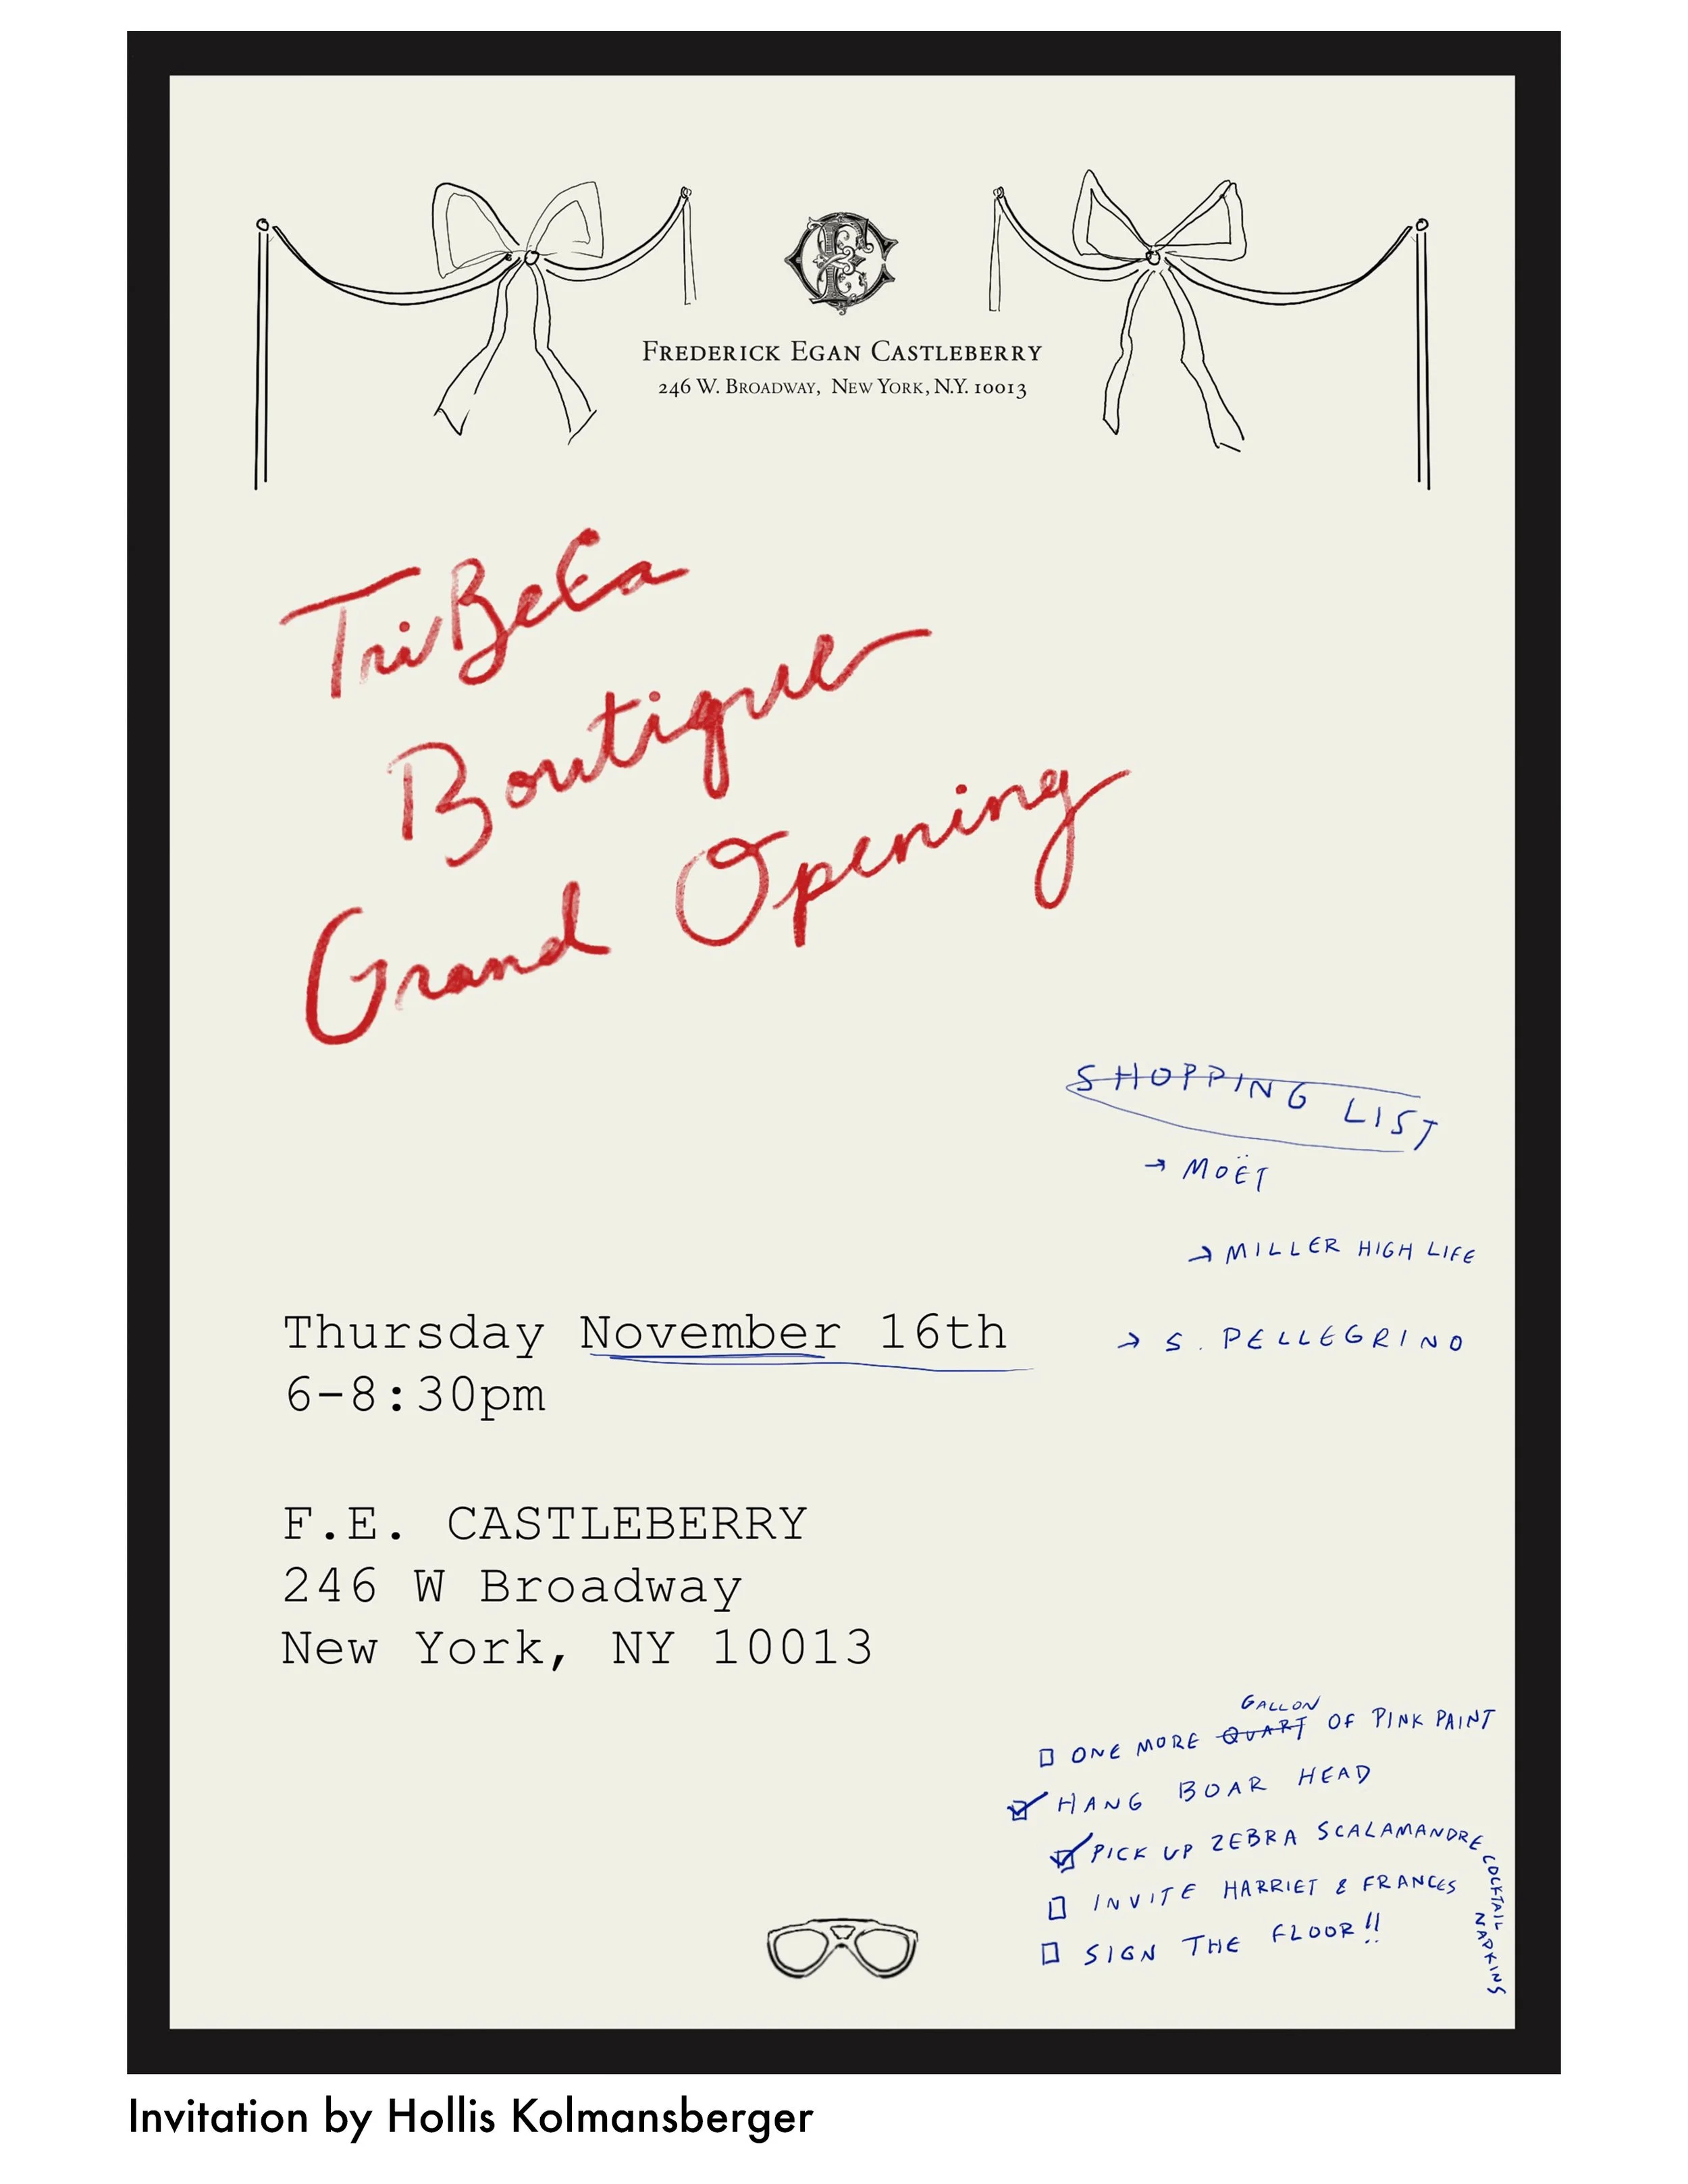 FREDERICK EGAN CASTLEBERRY
246 W. BROADWAY, NEW YORK, N.Y. 10013
TriBeCa
Boutique
Grand Opening
SHOPPING LIST
→ MOËT
→ MILLER HIGH LIFE
→ S. PELLEGRINO
Thursday November 16th
6-8:30pm
F.E. CASTLEBERRY
246 W Broadway
New York, NY 10013
GALLON
ONE MORE QUART OF PINK PAINT
HANG BOAR HEAD
PICK UP ZEBRA SCALAMANDRE COCKTAIL NAPKINS
INVITE HARRIET & FRANCES
SIGN THE FLOOR!!
Invitation by Hollis Kolmansberger